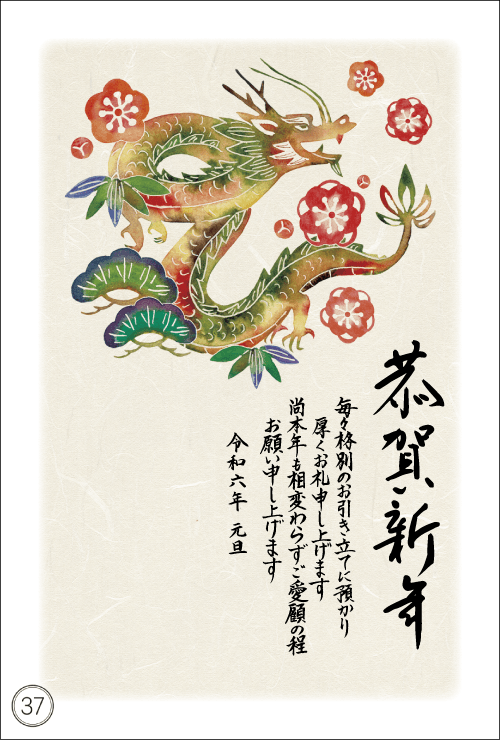 恭賀新年
毎々格別のお引き立てに預かり
厚くお礼申し上げます
尚本年も相変わらずご愛顧の程
お願い申し上げます
令和六年 元旦
37